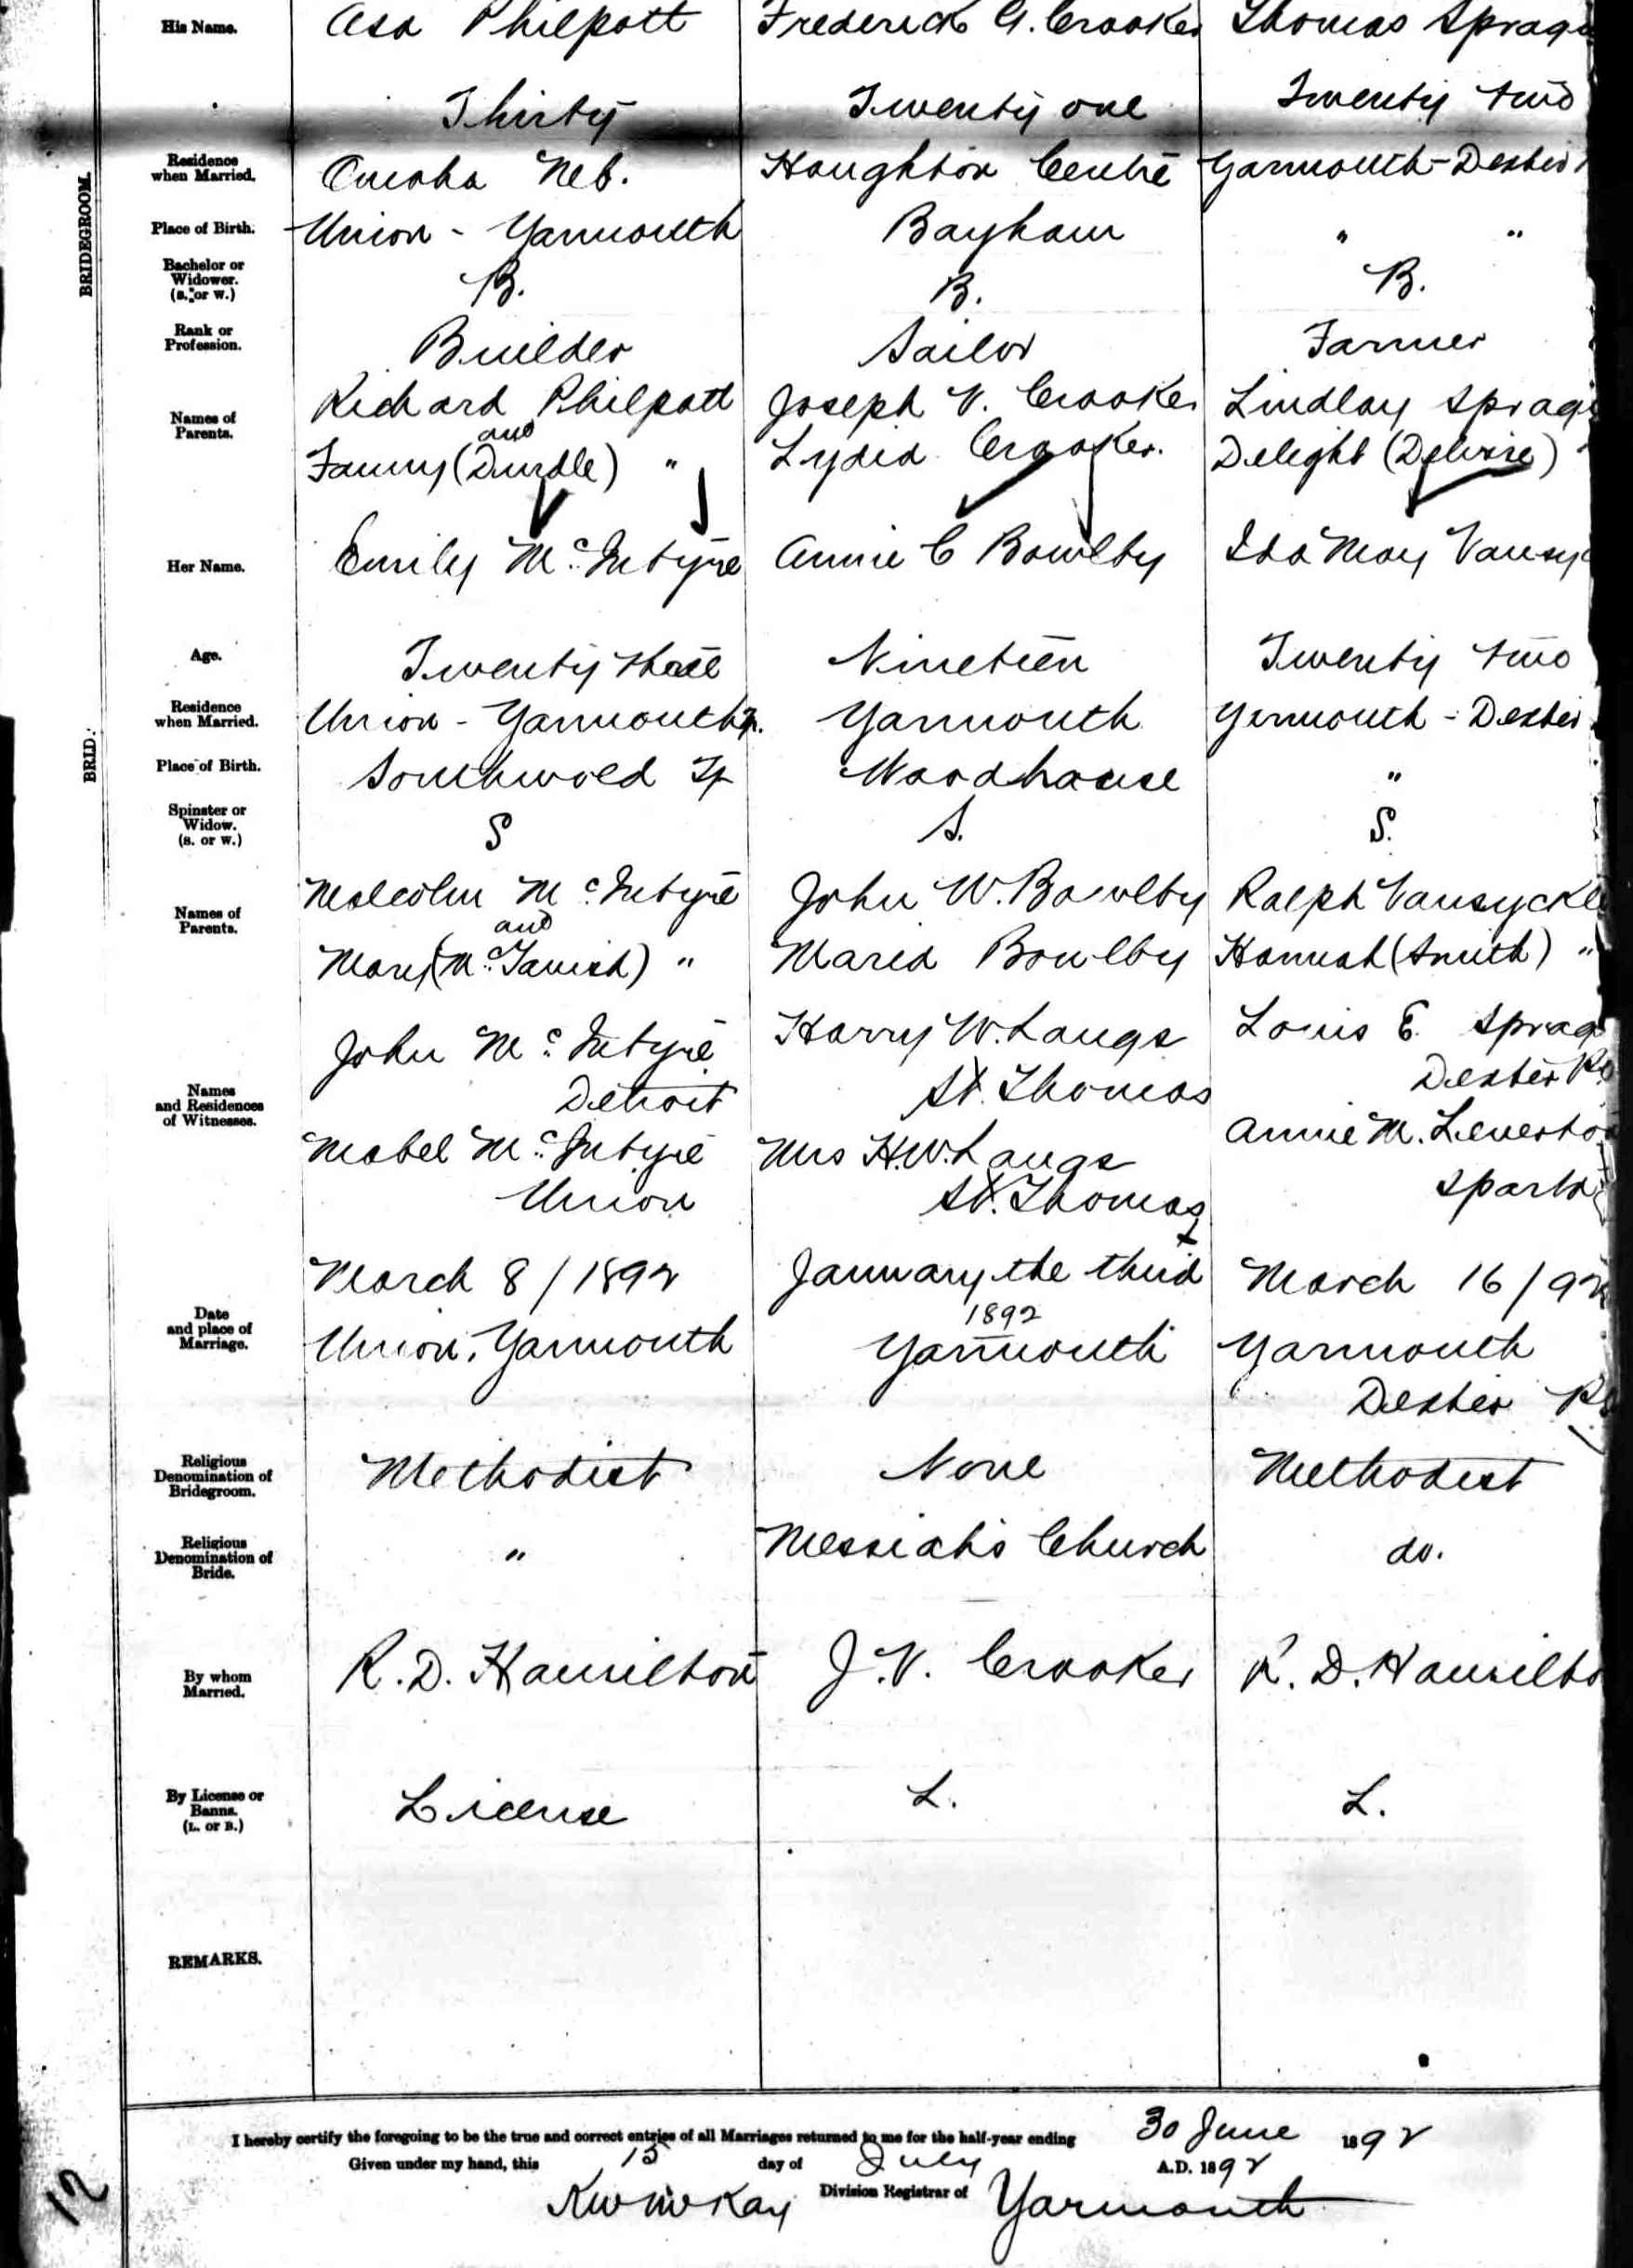 His Name.
Asa Philpott
Frederick G. Crooker
Thomas Sprag
Thirty
Twenty one
Twenty two
BRIDEGROOM.
Residence
when Married.
Omaha Neb.
Houghton Centre
Yarmouth - Dexter
Place of Birth.
Union - Yarmouth
Bayham
" "
Bachelor or
Widower.
(B. or W.)
B.
B.
B.
Rank or
Profession.
Builder
Sailor
Farmer
Names of
Parents.
Richard Philpott
and
Fanny (Durdle) "
Joseph V. Crooker
Lydia Crooker.
Lindlay Sprag
Delight
Her Name.
Emily Mc.Intyre
Annie C Bowlby
Ida May Vansy
BRID.
Age.
Twenty three
Nineteen
Twenty two
Residence
when Married.
Union - Yarmouth Tp.
Yarmouth
Yarmouth - Dexter
Place of Birth.
Southwold Tp
Woodhouse
"
Spinster or
Widow.
(S. or W.)
S
S.
S.
Names of
Parents.
Malcolm Mc.Intyre
and
Mary (Mc.Tavish) "
John W. Bowlby
Maria Bowlby
Ralph Vansyckle
Hannah (Smith) "
Names
and Residences
of Witnesses.
John Mc.Intyre
Detroit
Mabel Mc.Intyre
Union
Harry W. Langs
St. Thomas
Mrs H.W. Langs
St. Thomas
Louis E. Sprag
Dexter P.O
Annie M.
Sparta
Date
and place of
Marriage.
March 8/1892
Union, Yarmouth
January the third
1892
Yarmouth
March 16/92
Yarmouth
Dexter P.O
Religious
Denomination of
Bridegroom.
Methodist
None
Methodist
Religious
Denomination of
Bride.
"
Messiah's Church
do.
By whom
Married.
R. D. Hamilton
J. V. Crooker
R. D. Hamilto
By License or
Banns.
(L. or B.)
License
L.
L.
REMARKS.
I hereby certify the foregoing to be the true and correct entries of all Marriages returned to me for the half-year ending 30 June 1892
Given under my hand, this 15 day of July A.D. 1892
KW McKay Division Registrar of Yarmouth
12